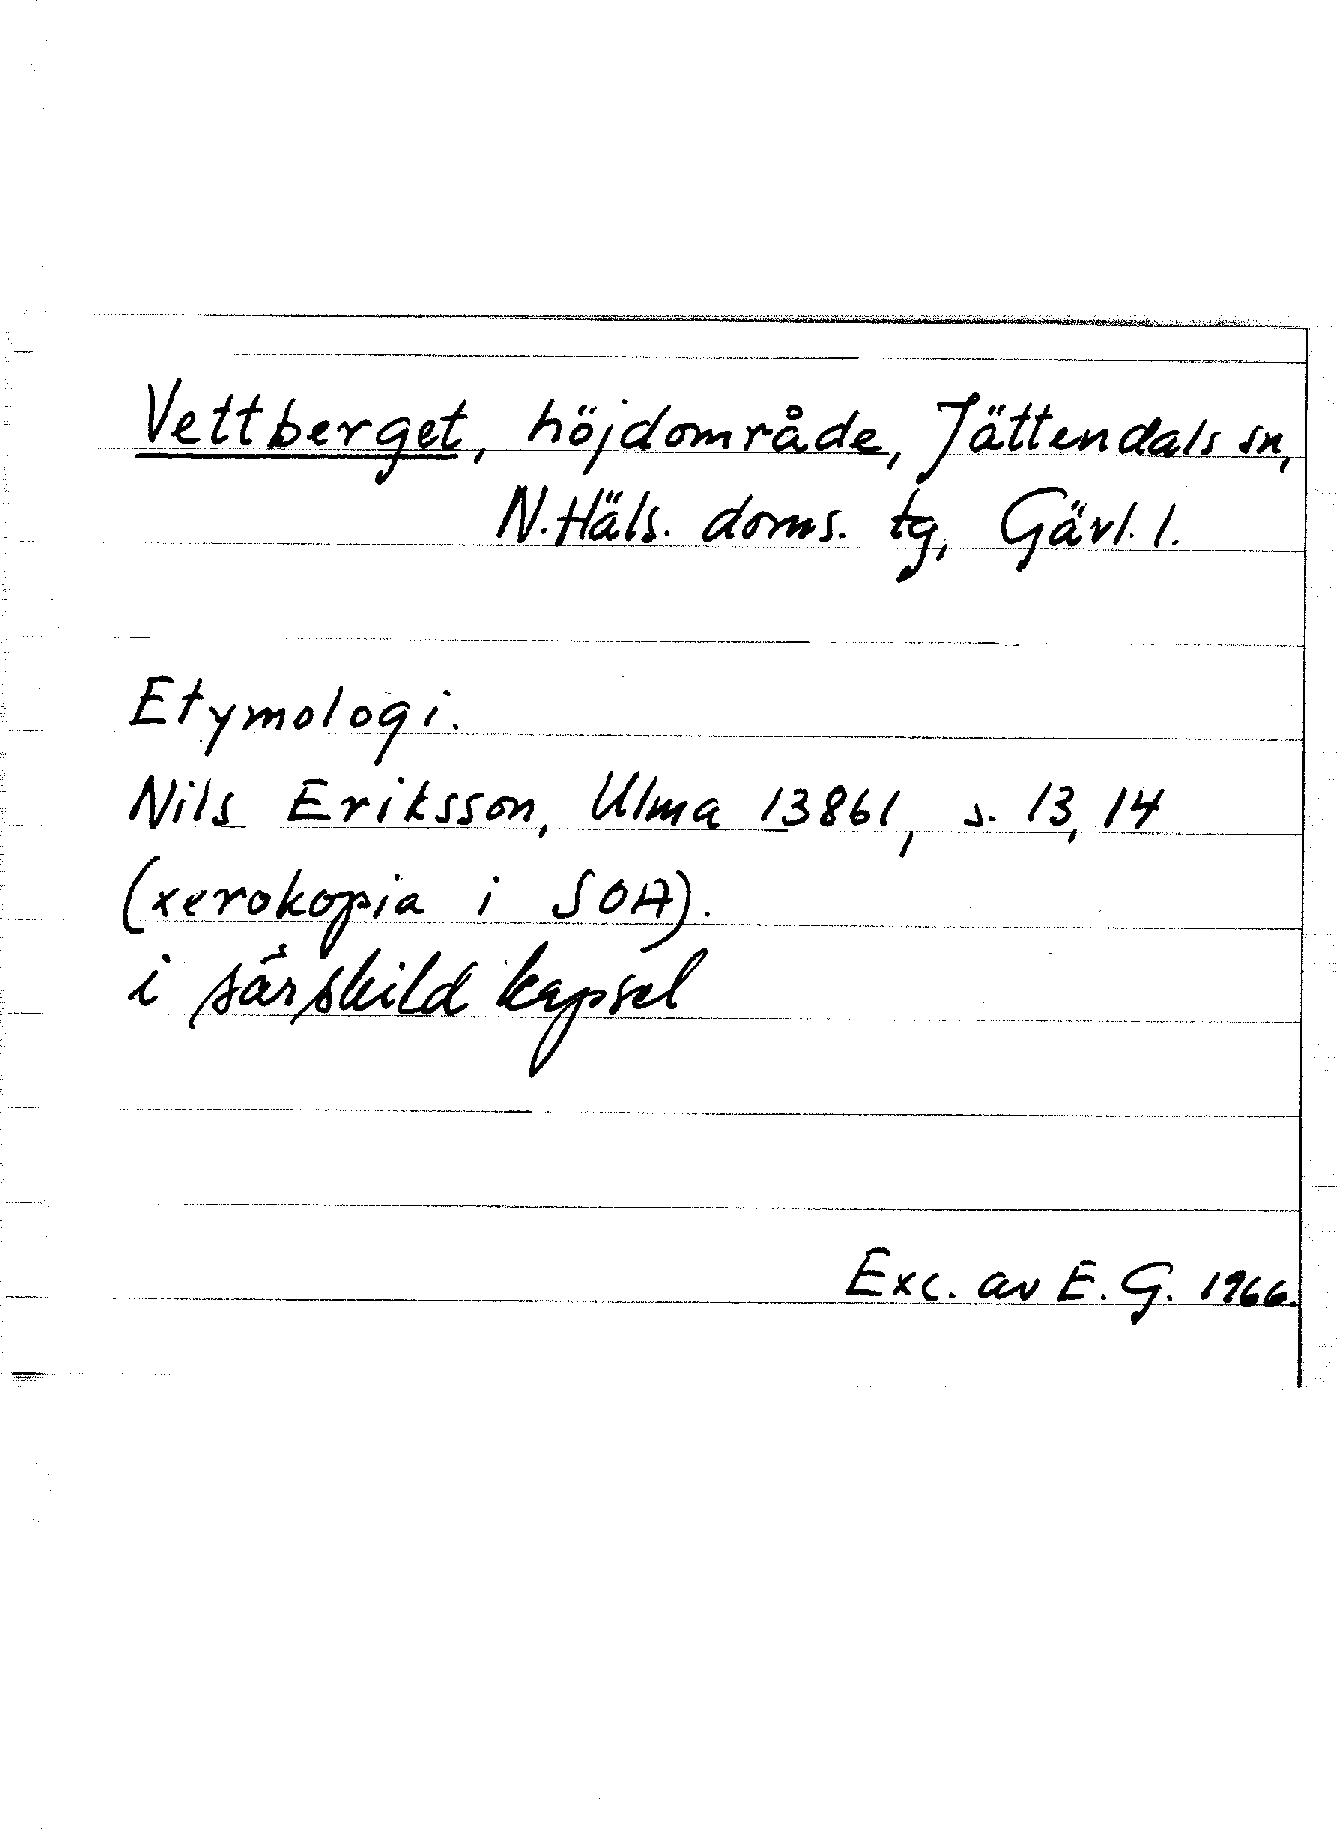 Vettberget, höjdområde, Jättendals sn,
N. Häls. doms. tg, Gävl. l.
Etymologi.
Nils Eriksson, Ulma 13861, s. 13, 14
(xerokopia i SOA).
i särskild kapsel
Exc. av E. G. 1966.